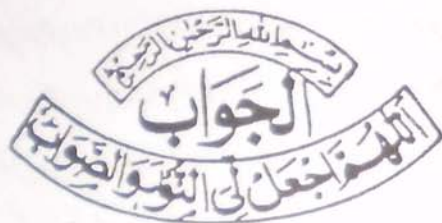 بِسْمِ اللهِ الرَّحْمٰنِ الرَّحِيْمِ
الْجَوَابُ
اَللّٰهُمَّ اجْعَلْ لِّي النُّوْرَ وَالصَّوَابَ